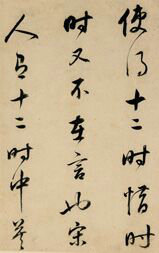 使得十二时惜时
时又不在言也宋
人有十二时中莫